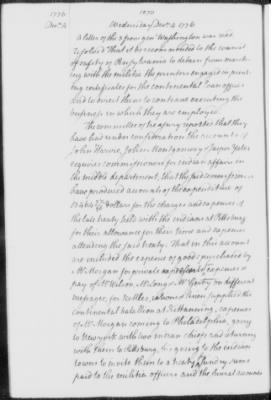 1776
Decr 4
1070
Wednesday Decr 4. 1776
A letter of the 3 from gen Washington was read
resolved That it be recommended to the council
of safety of Pensylvania to detain from march-
ing with the militia the printers engaged in print-
ing certificates for the continental loan office
and to direct them to continue executing the
business in which they are employed.
The committee of treasury reported that they
have had under consideration the accounts of
John Harvie, John Montgomery & Jasper Yates
esquires commissioners for indian affairs in
the middle department, that the said commissioners
have produced accounts of the expenditure of
dollars for the charges and expences of
the late treaty held with the indians at Pittsburg
for their allowance for their time and expence
attending the said treaty. That in this account
are included the expence of goods purchased by
Mr Morgan for private expences & expences &
pay of Wilson, McLong & McCarty on different
messages, for kettles, supplied the
continental batallion at Kittanning, expences
of Mr Morgan coming to Philadelphia, going
to New york with two indian chiefs and returning
with them to Pittsburg, his going to the indian
towns to invite them to a treaty and by sums
paid to the militia officers and the several accounts